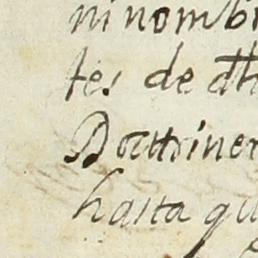 ni nombr
tes de dh
Doctriner
hasta qu